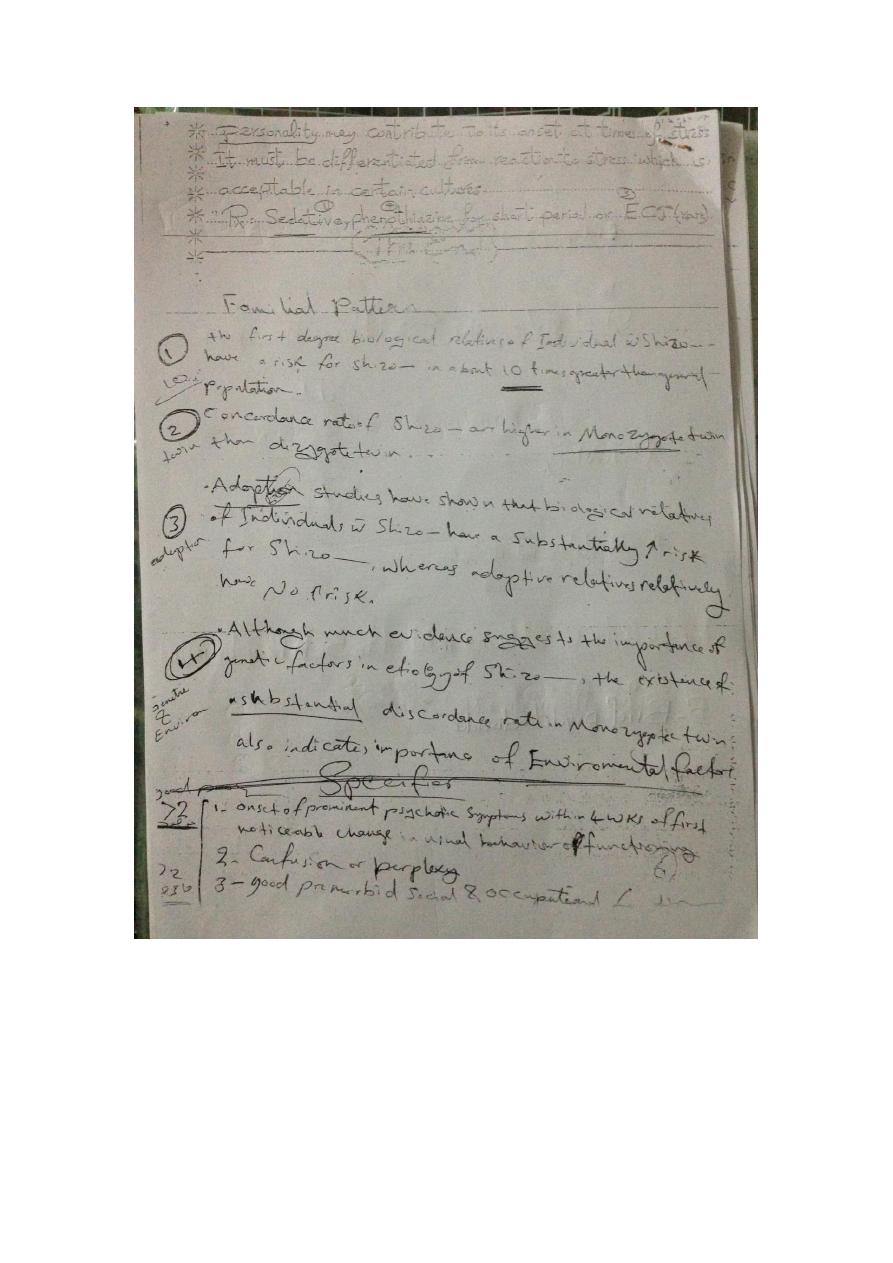 Personality may contribute to its onset at time of stress
It must be differentiated from reaction to stress which is
acceptable in certain cultures.
Rx: Sedative, phenothiazine for short period or ECT (rare)
① ② ③
The End
Familial Pattern
① the first degree biological relatives of Individual w̄ Shizo—
have a risk for shizo— in about 10 times greater than general
population.
② Concordance rate of Shizo— are higher in Monozygote twin
twin than dizygote twin....
• Adoption studies have shown that biological relatives
③ of Individuals w̄ Shizo— have a substantially ↑ risk
adoption for Shizo—, whereas adoptive relatives relatively
have No ↑ risk.
• Although much evidence suggests the importance of
4 genetic factors in etiology of Shizo—, the existence of
genetic & Environ a substantial discordance rate in Monozygotic twin
also indicates importance of Enviromental factors
Specifier
good
≥2 1- onset of prominent psychotic symptoms within 4 wks of first
noticeable change in usual behavior of functioning
2- Confusion or perplexy
≥2 3- good premorbid social & occupational